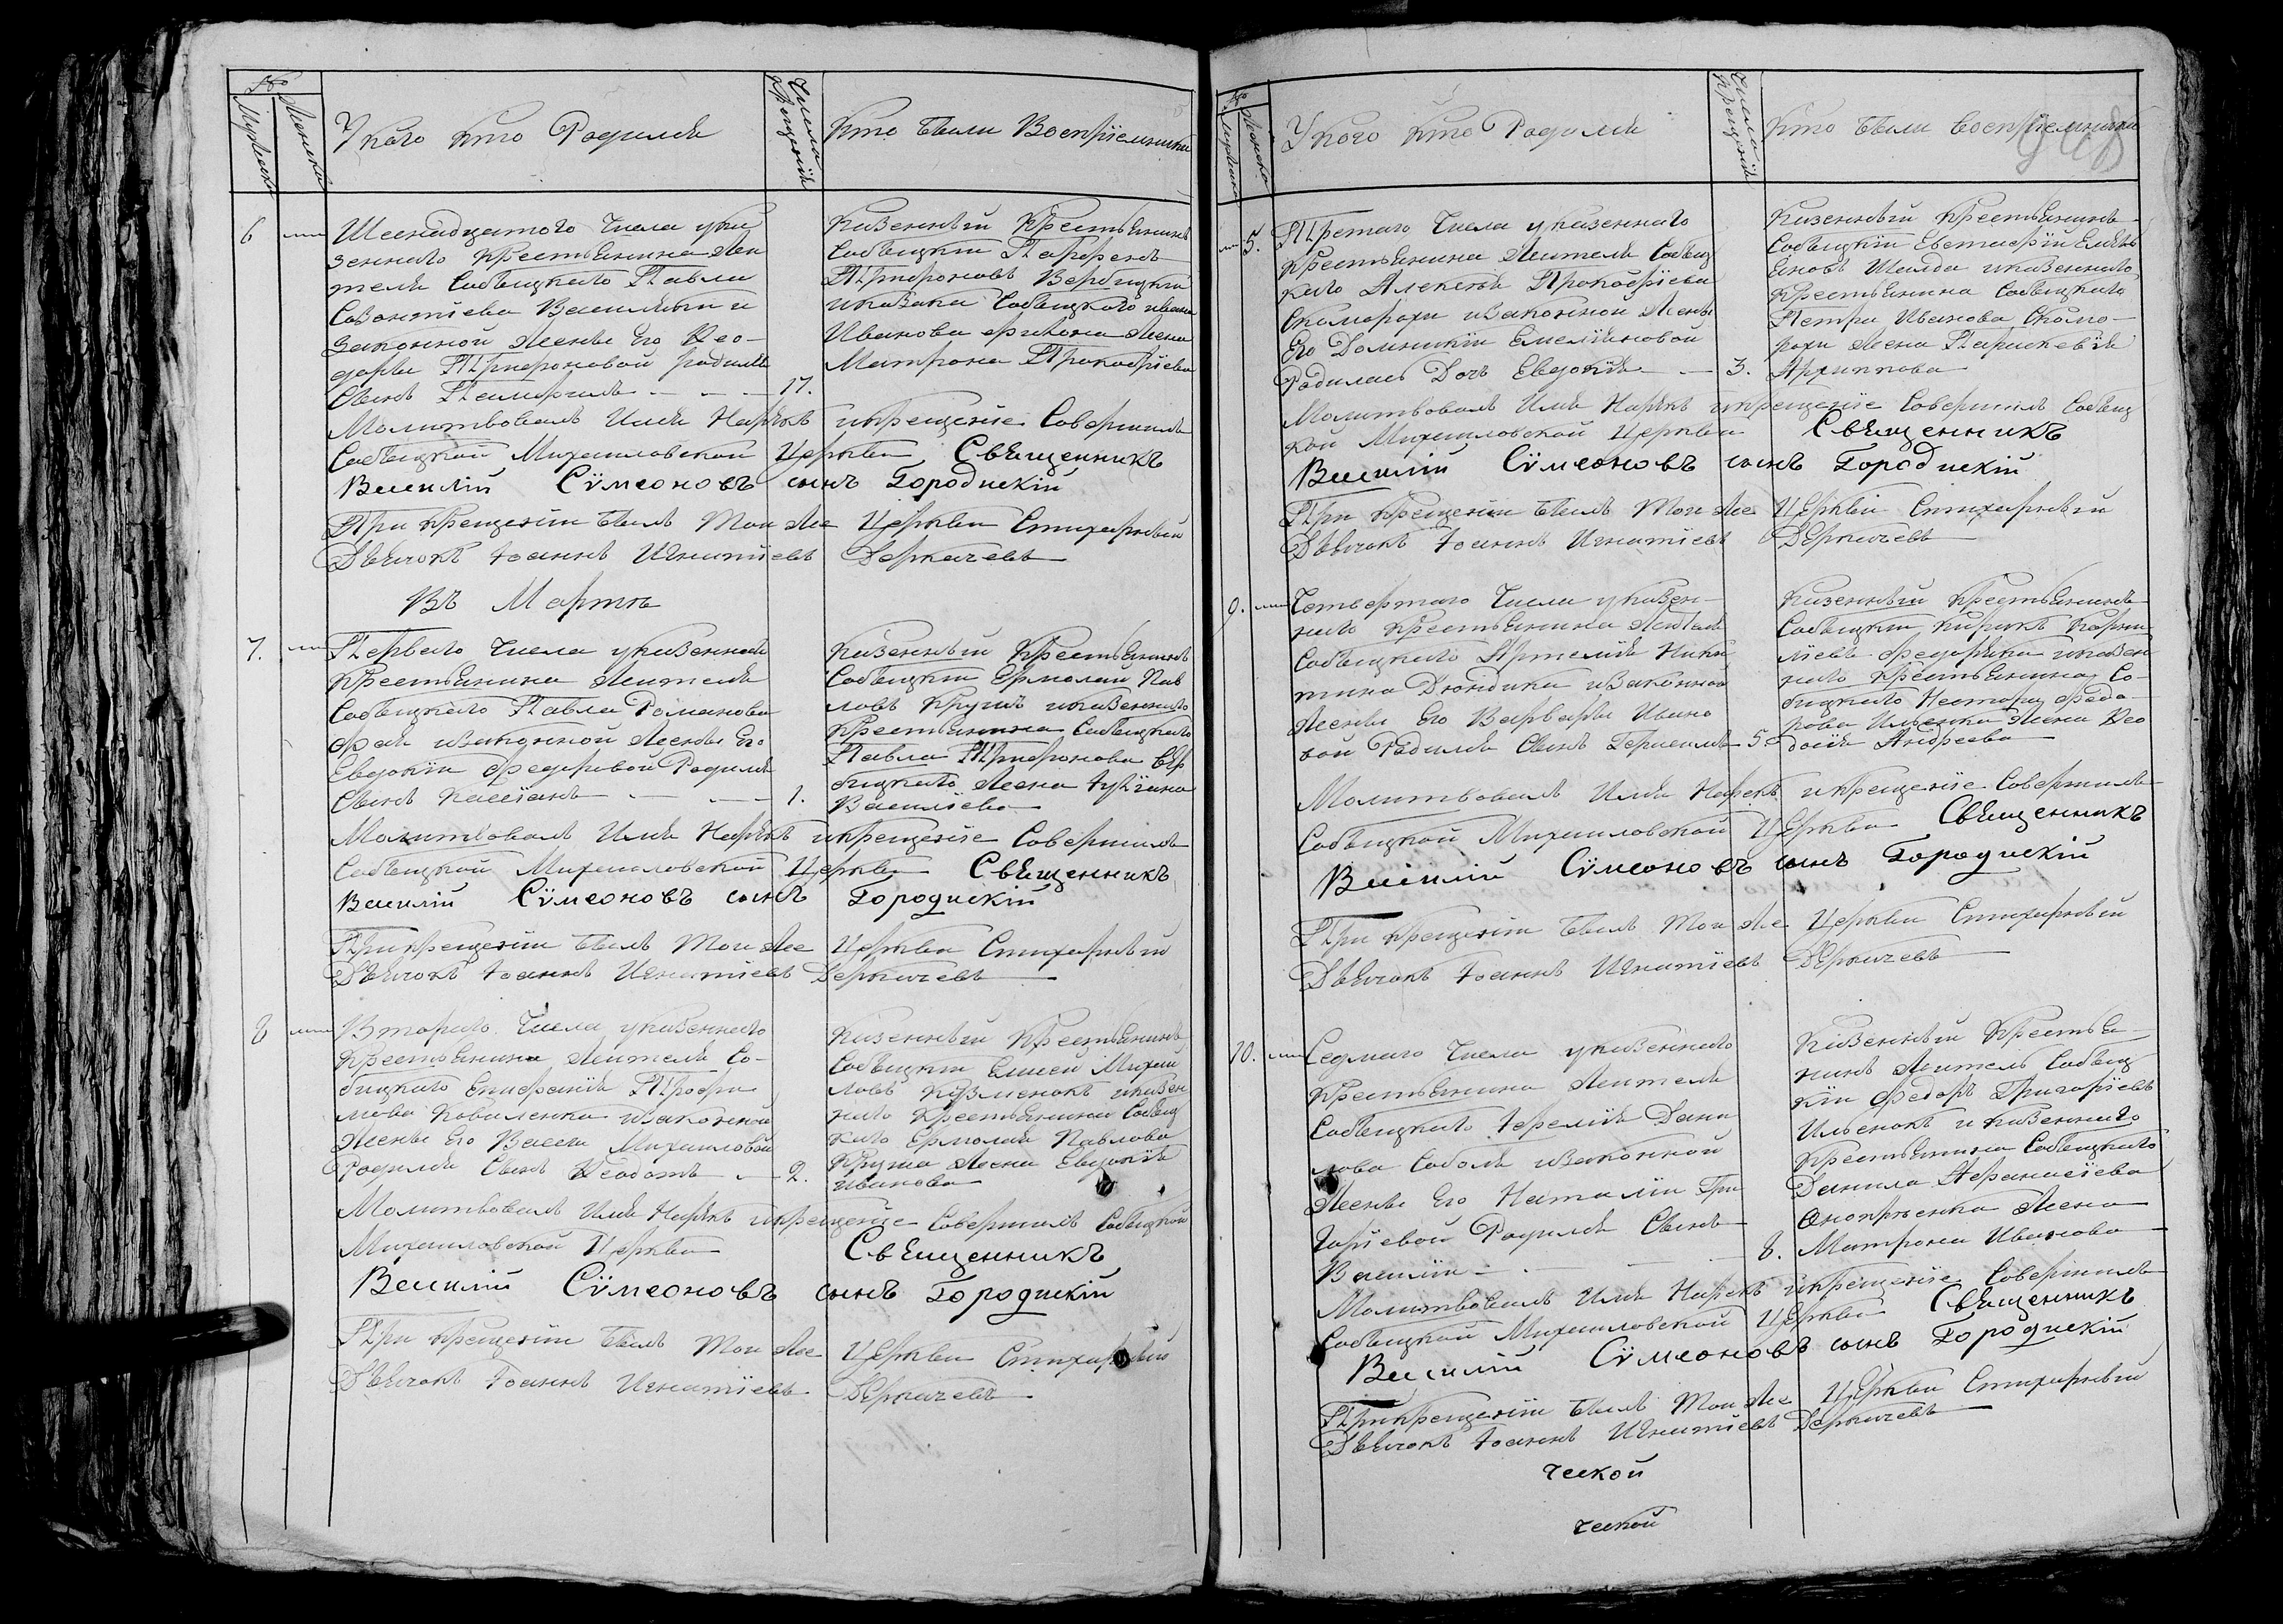 №
Мужеска
Женска
У кого кто Родился
Числа Крещенія
Кто были Воспріемники
6
Шеснадцатого Числа у ка
зеннаго крестьянина Жи
теля Собыцкаго Павла
Созонтіева Василихи и
законной Жены Его Ѳео-
доры Трифоновой родился
Сынъ Памфилъ 17.
Казенный Крестьянинъ
Собыцкій Парфенъ
Трифоновъ Вербицкій
и казака Собыцкого Ивана
Иванова Жена
Матрона Прокофіева
Молитвовалъ Имя Нарекъ и крещеніе Совершилъ
Собыцкой Михаиловской Церкви Священникъ
Василій Сѵмеоновъ сынъ Городискій
При крещеніи былъ Той же Церкви Стихарный
Дьячокъ Іоаннъ Игнатіевъ Деркачевъ
Въ Мартѣ
7.
Перваго Числа у казеннаго
Крестьянина Жителя
Собыцкаго Павла Романова
и законной Жены Его
Евдокіи Федоровой Родился
Сынъ Кассіанъ 1.
Казенный Крестьянинъ
Собыцкій Ермолай Пав
ловъ Круша и казеннаго
Крестьянина Собыцкаго
Павла Трифонова Вер
бицкаго Жена Іуліана
Василіева
Молитвовалъ Имя Нарекъ и крещеніе Совершилъ
Собыцкой Михаиловской Церкви Священникъ
Василій Сѵмеоновъ сынъ Городискій
При крещеніи былъ Той же Церкви Стихарный
Дьячокъ Іоаннъ Игнатіевъ Деркачевъ
8
Втораго Числа у казеннаго
Крестьянина Жителя Со-
быцкаго Епифанія Трофи
мова Коваленка и законной
Жены Его Вассы Михаиловой
Родился Сынъ Ѳеодотъ 2.
Казенный Крестьянинъ
Собыцкій Елисей Михаи
ловъ Кузменокъ и казен
наго Крестьянина Собыц
каго Ермолая Павлова
Круша Жена Евдокія
Иванова
Молитвовалъ Имя Нарекъ и крещеніе Совершилъ Собыцкой
Михаиловской Церкви Священникъ
Василій Сѵмеоновъ сынъ Городискій
При крещеніи былъ Той же Церкви Стихарный
Дьячокъ Іоаннъ Игнатіевъ Деркачевъ
№
Мужеска
Женска
У кого кто Родился
Числа Крещенія
Кто были воспріемники
5.
Третяго Числа у казеннаго
Крестьянина Жителя Собыц
каго Алексѣя Прокофіева
Скоморохи и законной Жены
Его Домникіи Емеліяновой
Родилась Дочь Евдокія 3.
Казенный Крестьянинъ
Собыцкій Евстафій Емель
яновъ Шелда и казеннаго
Крестьянина Собыцкаго
Петра Иванова Скомо-
рохи Жена Параскевія
Архипова
Молитвовалъ Имя Нарекъ и крещеніе Совершилъ Собыц
кой Михаиловской Церкви Священникъ
Василій Сѵмеоновъ сынъ Городискій
При крещеніи былъ Той же Церкви Стихарный
Дьячокъ Іоаннъ Игнатіевъ Деркачевъ
9.
Четвертаго Числа у казен-
наго Крестьянина Жителя
Собыцкаго Артемія Ники
тина Дюндика и законной
Жены Его Варвары Ивано
вой Родился Сынъ Герасимъ 5.
Казенный Крестьянинъ
Собыцкій Кирикъ Корни
ліевъ Федоряка и казен
наго Крестьянина Со-
быцкаго Нестора Федо-
рова Ильенка Жена Ѳео
досія Андреева
Молитвовалъ Имя Нарекъ и крещеніе Совершилъ
Собыцкой Михаиловской Церкви Священникъ
Василій Сѵмеоновъ сынъ Городискій
При крещеніи былъ Той же Церкви Стихарный
Дьячокъ Іоаннъ Игнатіевъ Деркачевъ
10.
Седмаго Числа у казеннаго
Крестьянина Жителя
Собыцкаго Іереміи Дани
лова Соболя и законной
Жены Его Наталіи Гри
горіевой Родился Сынъ
Василій 8.
Казенный Крестья-
нинъ Житель Собыц
кій Федоръ Григоріевъ
Ильенокъ и казеннаго
Крестьянина Собыцкаго
Данила Афанасіева
Онопрѣенка Жена
Матрона Иванова
Молитвовалъ Имя Нарекъ и крещеніе Совершилъ
Собыцкой Михаиловской Церкви Священникъ
Василій Сѵмеоновъ сынъ Городискій
При крещеніи былъ Той же Церкви Стихарный
Дьячокъ Іоаннъ Игнатіевъ Деркачевъ
ческой
ческой